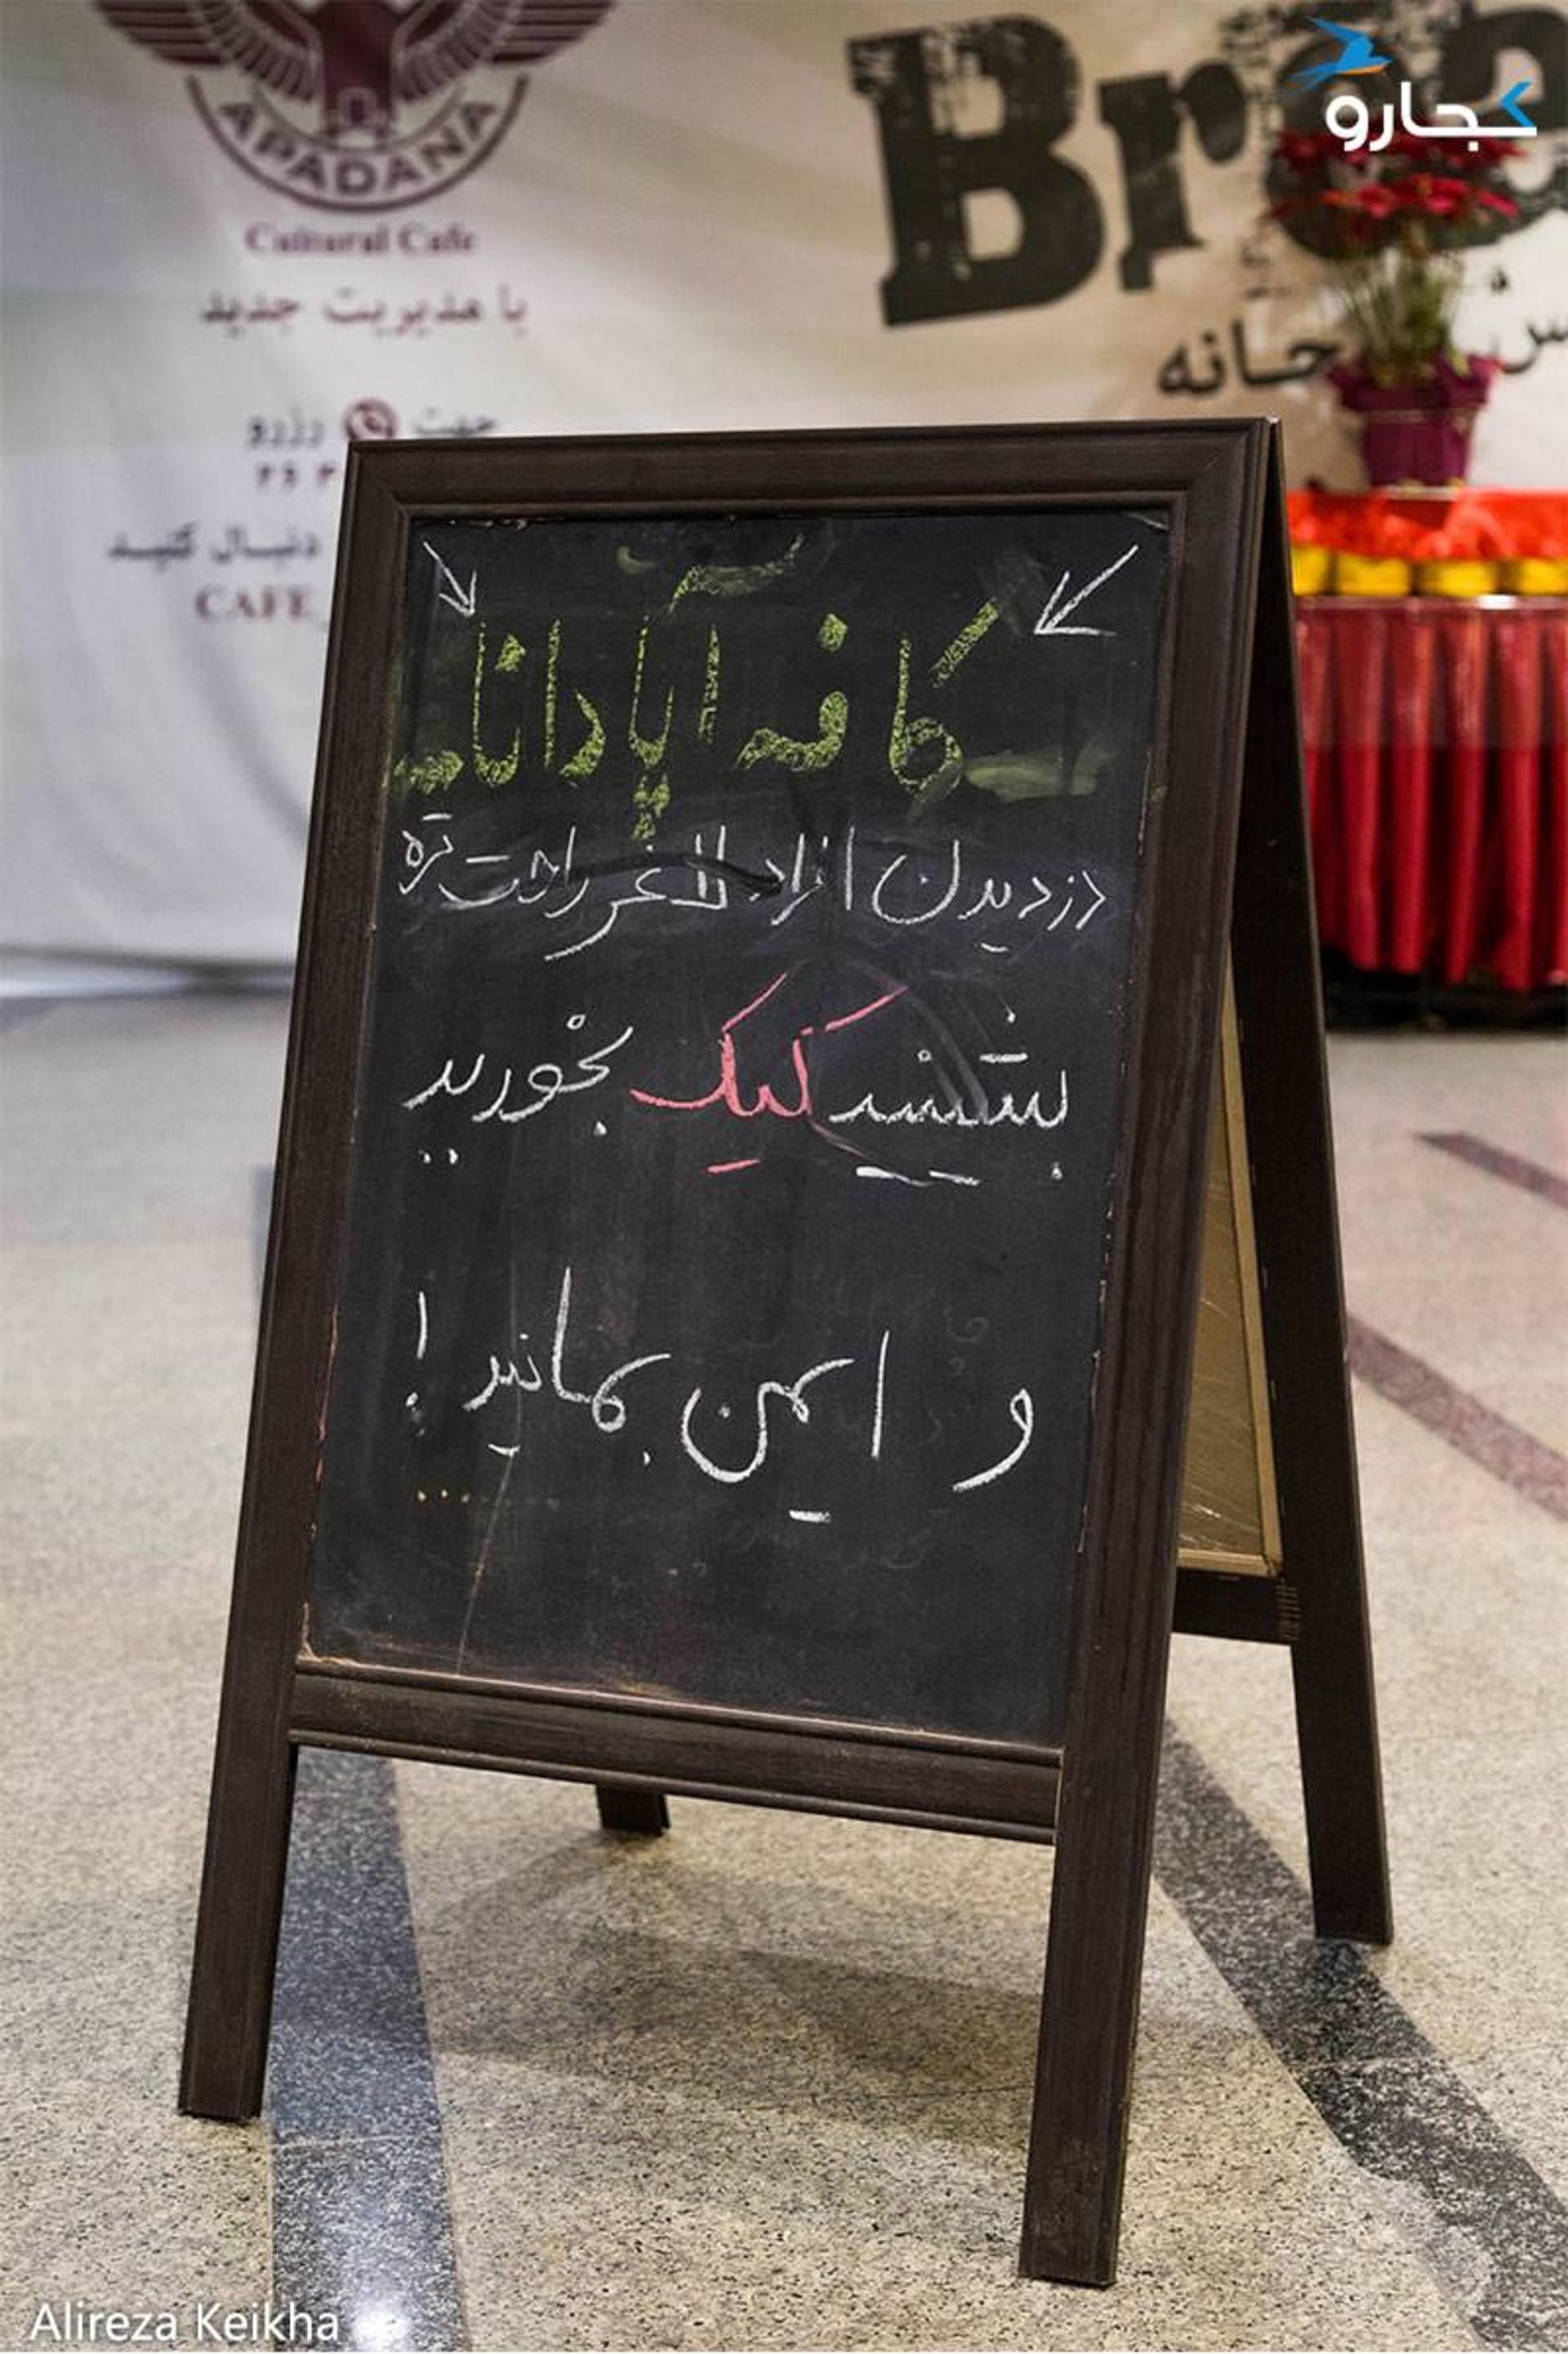 APADANA
Cultural Cafe
با مدیریت جدید
جهت رزرو
دنبال کنید
CAFE_
Bre
کجارو
کافه آپادانا
دزدیدن افراد لاغر راحت تره
بشینید کیک بخورید
و ایمن بمانید!
...
Alireza Keikha